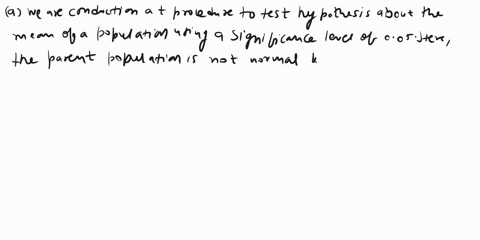 (a) we are conduction a t procedure to test hypothesis about the
mean of a population using a significance level of 0.05. Here,
the parent population is not normal